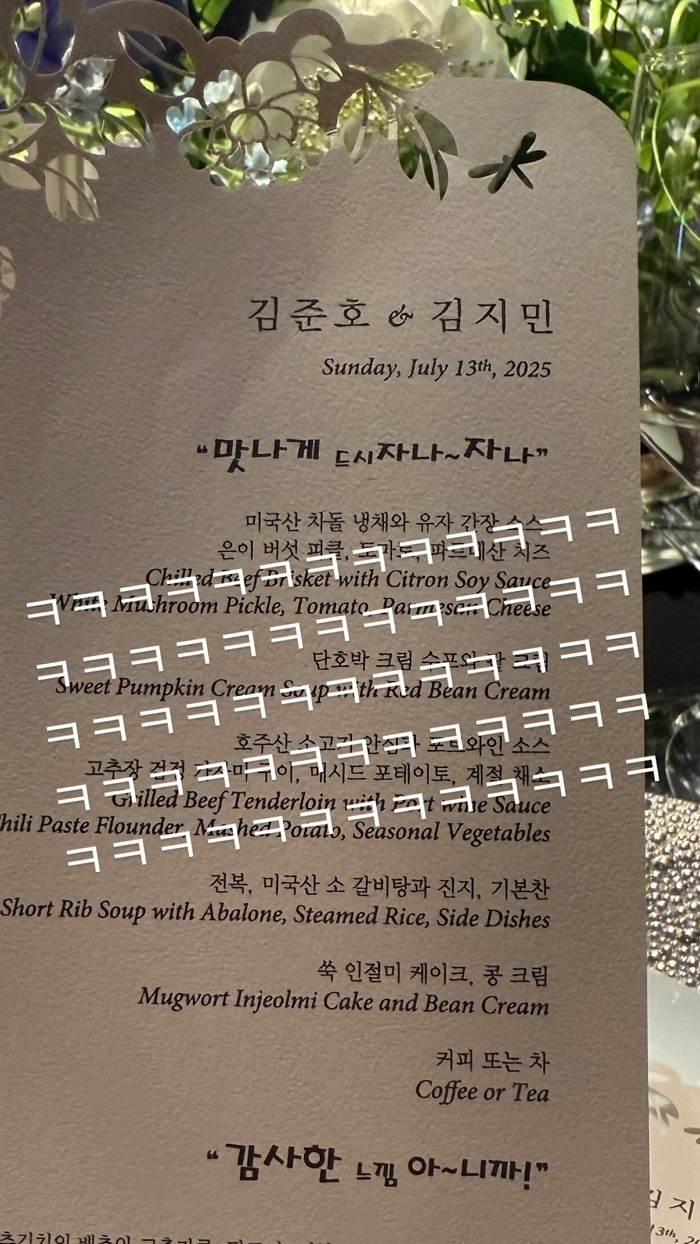 김준호 & 김지민
Sunday, July 13th, 2025
"맛나게 드시자나~자나"
미국산 차돌 냉채와 유자 간장 소스
은이 버섯 피클, 토마토, 파르메산 치즈
Chilled Beef Brisket with Citron Soy Sauce
White Mushroom Pickle, Tomato, Parmesan Cheese
ㅋㅋㅋㅋㅋㅋㅋㅋㅋㅋㅋㅋㅋ
ㅋㅋㅋㅋㅋㅋㅋㅋㅋㅋㅋㅋㅋ
단호박 크림 수프와 팥 크림
Sweet Pumpkin Cream Soup with Red Bean Cream
ㅋㅋㅋㅋㅋㅋㅋㅋㅋㅋㅋㅋㅋ
호주산 소고기 안심과 포트와인 소스
고추장 검정 가자미 구이, 매시드 포테이토, 계절 채소
Grilled Beef Tenderloin with Port wine Sauce
hili Paste Flounder, Mashed Potato, Seasonal Vegetables
ㅋㅋㅋㅋㅋㅋㅋㅋㅋㅋㅋㅋㅋ
ㅋㅋㅋㅋㅋㅋㅋㅋㅋㅋㅋㅋㅋ
전복, 미국산 소 갈비탕과 진지, 기본찬
Short Rib Soup with Abalone, Steamed Rice, Side Dishes
쑥 인절미 케이크, 콩 크림
Mugwort Injeolmi Cake and Bean Cream
커피 또는 차
Coffee or Tea
"감사한 느낌 아~니까!"
김지
13th, 2